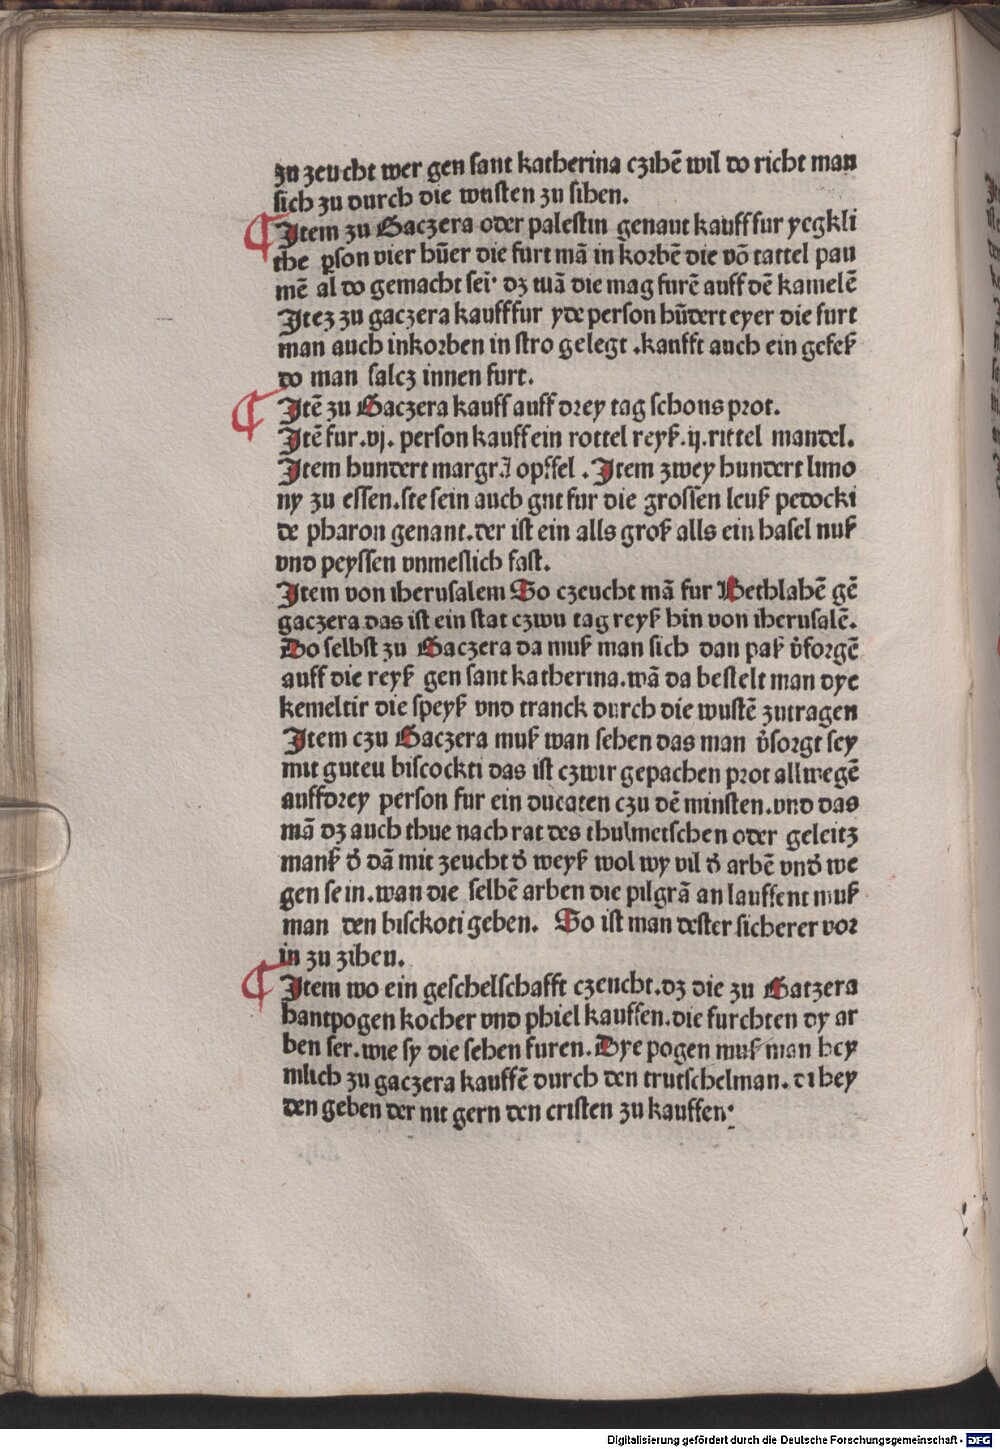 zu zeucht wer gen sant katherina czihē wil do richt man
sich zu durch die wusten zu sihen.
Item zu Gaczera oder palestin genant kauff fur yegkli
che ꝑson vier hūer die furt mā in korbē die vō tattel pau
mē al do gemacht sei· dz tuā die mag furē auff dē kamelē
Itez zu gaczera kauff fur yde person hūdert eyer die furt
man auch inkorben in stro gelegt .kaufft auch ein gefeß
do man salcz innen furt.
Itē zu Gaczera kauff auff drey tag schons prot.
Itē fur .vj. person kauff ein rottel reyß.ij.rittel mandel.
Item hundert margrā opffel . Item zwey hundert limo
ny zu essen.ste sein auch gut fur die grossen leuß pedocki
de pharon genant.der ist ein alls groß alls ein hasel nuß
vnd peyssen vnmeslich fast.
Item von iherusalem So czeucht mā fur Bethlahē gē
gaczera das ist ein stat czwu tag reyß hin von iherusalē.
Do selbst zu Gaczera da muß man sich dan paß v̉sorgē
auff die reyß gen sant katherina.wā da bestelt man dye
kemeltir die speyß vnd tranck durch die wustē zutragen
Item czu Gaczera muß wan sehen das man v̉sorgt sey
mit guteu biscockti das ist czwir gepachen prot allwegē
auffdrey person fur ein ducaten czu dē minsten.vnd das
mā dz auch thue nach rat des thulmetschen oder geleitz
manß d̉ dā mit zeucht d̉ weyß wol wy vil d̉ arbē vnd̉ we
gen sein.wan die selbē arben die pilgrā an lauffent muß
man den bisckoti geben. So ist man dester sicherer vor
in zu zihen.
Item wo ein geschelschafft czeucht.dz die zu Gatzera
hantpogen kocher vnd phiel kauffen.die furchten dy ar
ben ser.wie sy die sehen furen.Dye pogen muß man hey
mlich zu gaczera kauffē durch den trutschelman.di hey
den geben der nit gern den cristen zu kauffen·
Digitalisierung gefördert durch die Deutsche Forschungsgemeinschaft - DFG